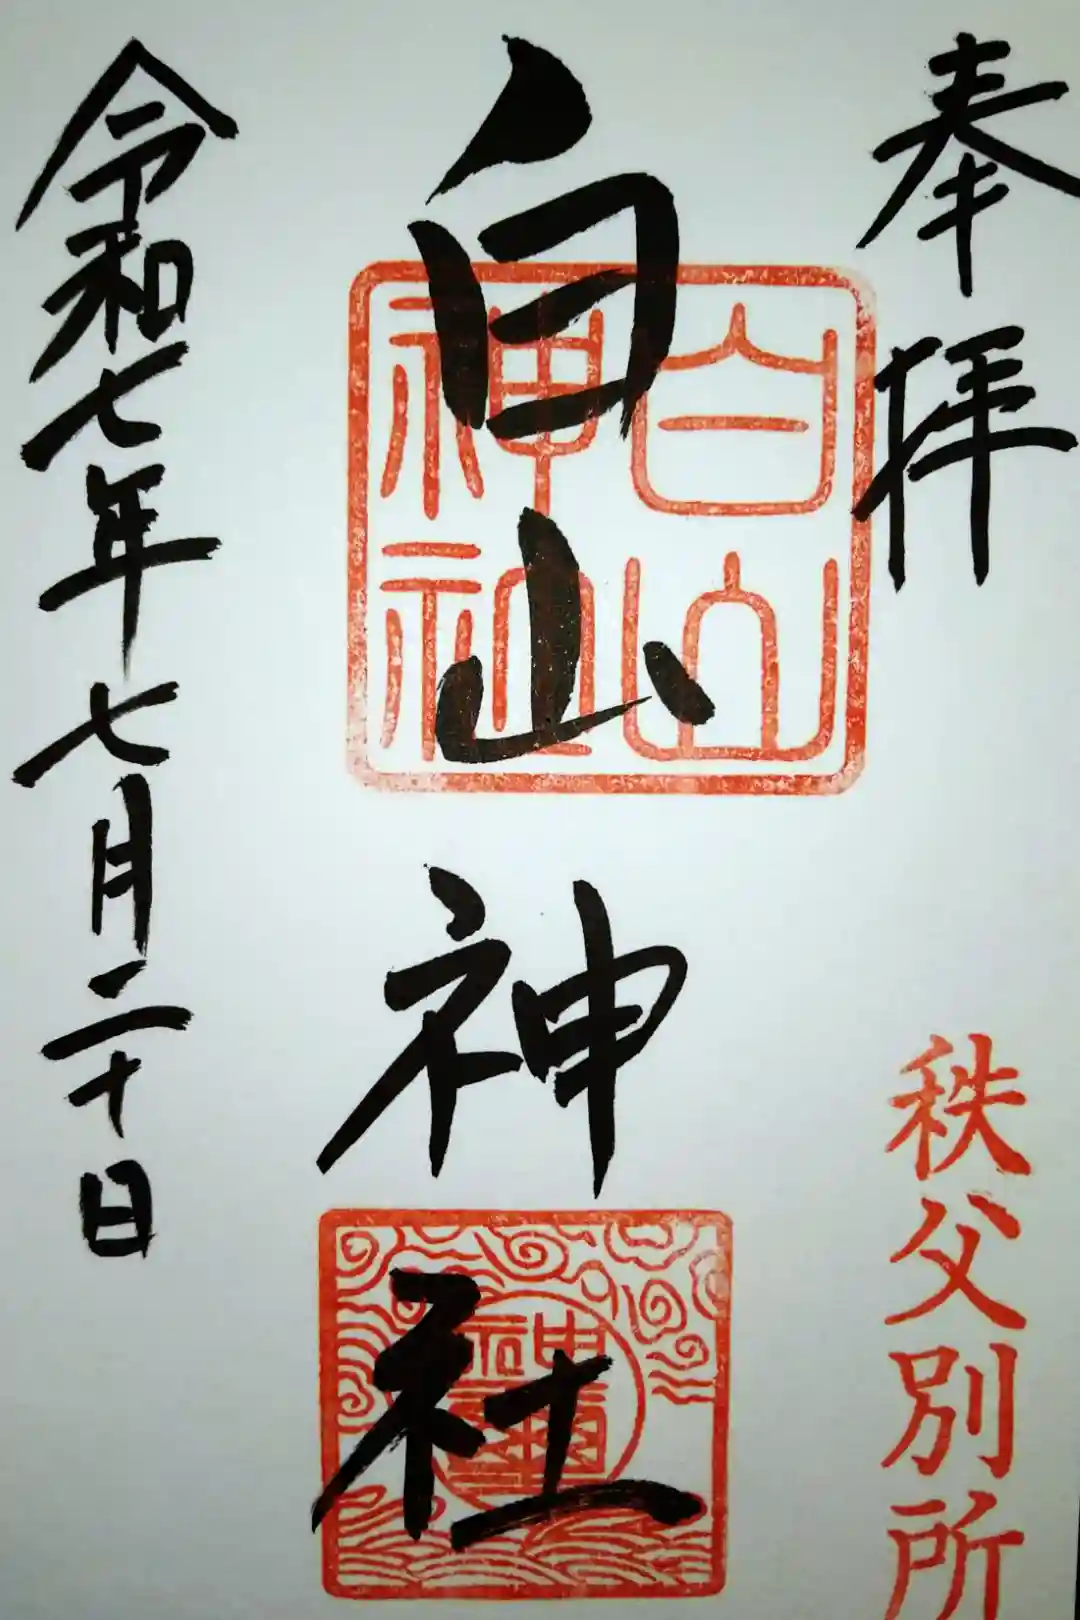 奉拝
秩父別所
白山神社
白山
神社
神璽
令和七年七月二十日